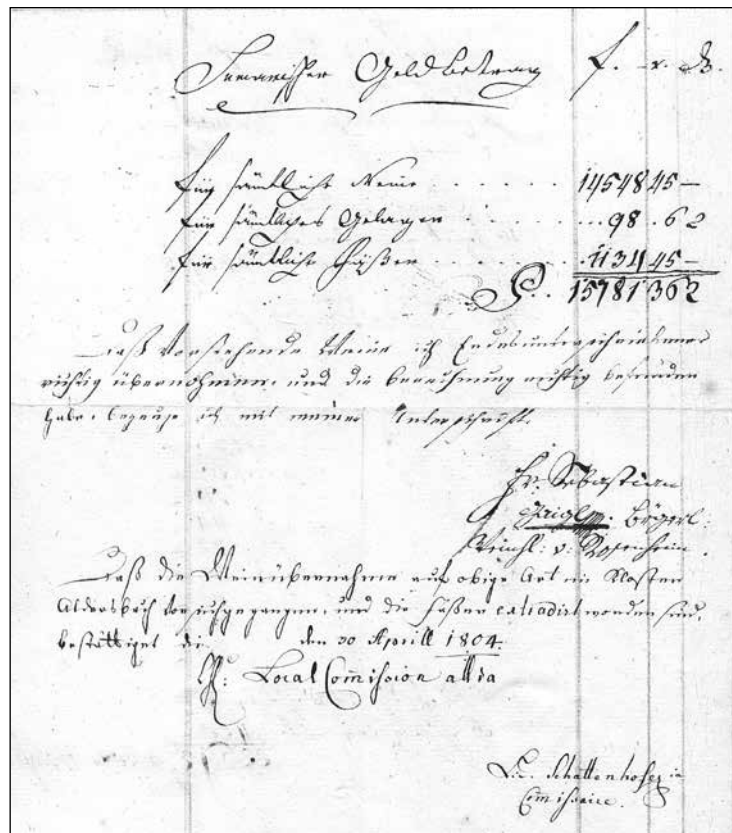 Sumarischer Geldbetrag f. x. d.
für sämtliche Weine . . . . . 14548 45 —
für sämtliches Gelager . . . . . 98 . 6 2
für sämtliche Fäßer . . . . . 1134 45 —
S. . 15781 36 2
Daß Vorstehende Weine ich Endesunterzeichneter
richtig übernohmen, und die Berechnung richtig befunden
habe, bezeuge ich mit meiner Unterschrift.
Sebastian
bürgerl:
v: Rosenheim.
Daß die Weinübernahme auf obige Art im Kloster
Aldersbach vor sich gegangen, und die Fäßer extradirt worden sind,
bestättiget die den 30 Aprill 1804.
Local Com̄ission allda
Lic. Schattenhofer
Com̄issaire.